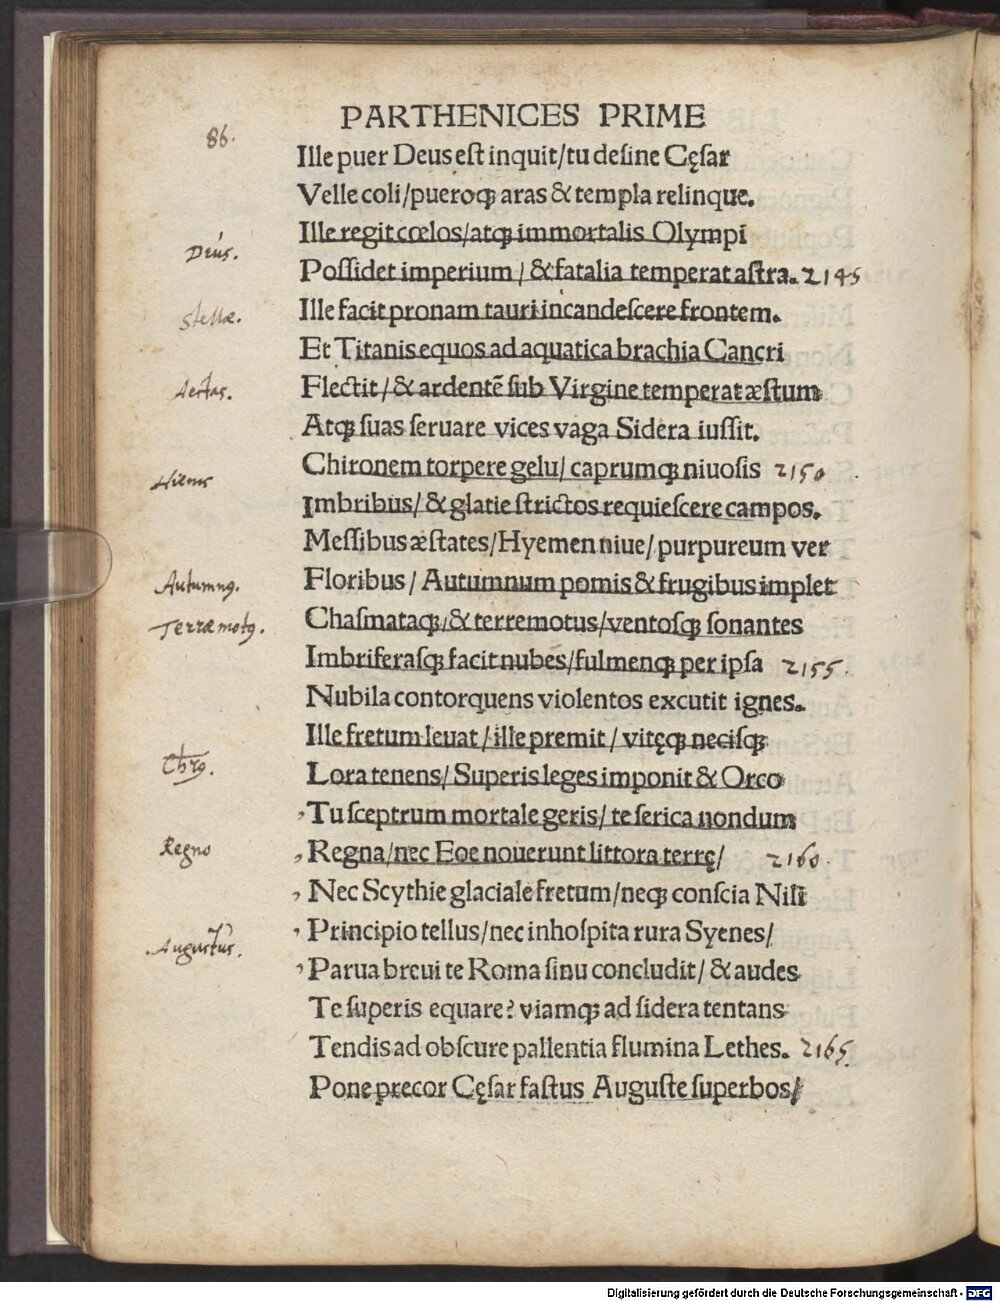 PARTHENICES PRIME
86.
Ille puer Deus est inquit/tu desine Cęsar
Velle coli/pueroqꝫ aras & templa relinque.
Ille regit cœlos/atqꝫ immortalis Olympi
Deus.
Possidet imperium / & fatalia temperat astra. 2145
Stellæ.
Ille facit pronam tauri incandescere frontem.
Et Titanis equos ad aquatica brachia Cancri
Aestas.
Flectit/& ardentē sub Virgine temperat æstum
Atqꝫ suas seruare vices vaga Sidera iussit.
Chironem torpere gelu/ caprumqꝫ niuosis 2150
Hiems
Imbribus/ & glatie strictos requiescere campos.
Messibus æstates/Hyemen niue/ purpureum ver
Autumnꝰ.
Floribus / Autumnum pomis & frugibus implet
Terræmotꝰ.
Chasmataqꝫ/& terremotus/ventosqꝫ sonantes
Imbriferasqꝫ facit nubes/fulmenqꝫ per ipsa 2155.
Nubila contorquens violentos excutit ignes.
Ille fretum leuat / ille premit / vitęqꝫ necisqꝫ
Chrꝰ.
Lora tenens/ Superis leges imponit & Orco
Tu sceptrum mortale geris/ te serica nondum
Regno
Regna/nec Eoe nouerunt littora terrę/ 2160.
Nec Scythie glaciale fretum/neqꝫ conscia Nili
Principio tellus/nec inhospita rura Syenes/
Augustus.
Parua breui te Roma sinu concludit/ & audes
Te superis equare? viamqꝫ ad sidera tentans
Tendis ad obscure pallentia flumina Lethes. 2165.
Pone precor Cęsar fastus Auguste superbos/
Digitalisierung gefördert durch die Deutsche Forschungsgemeinschaft - DFG